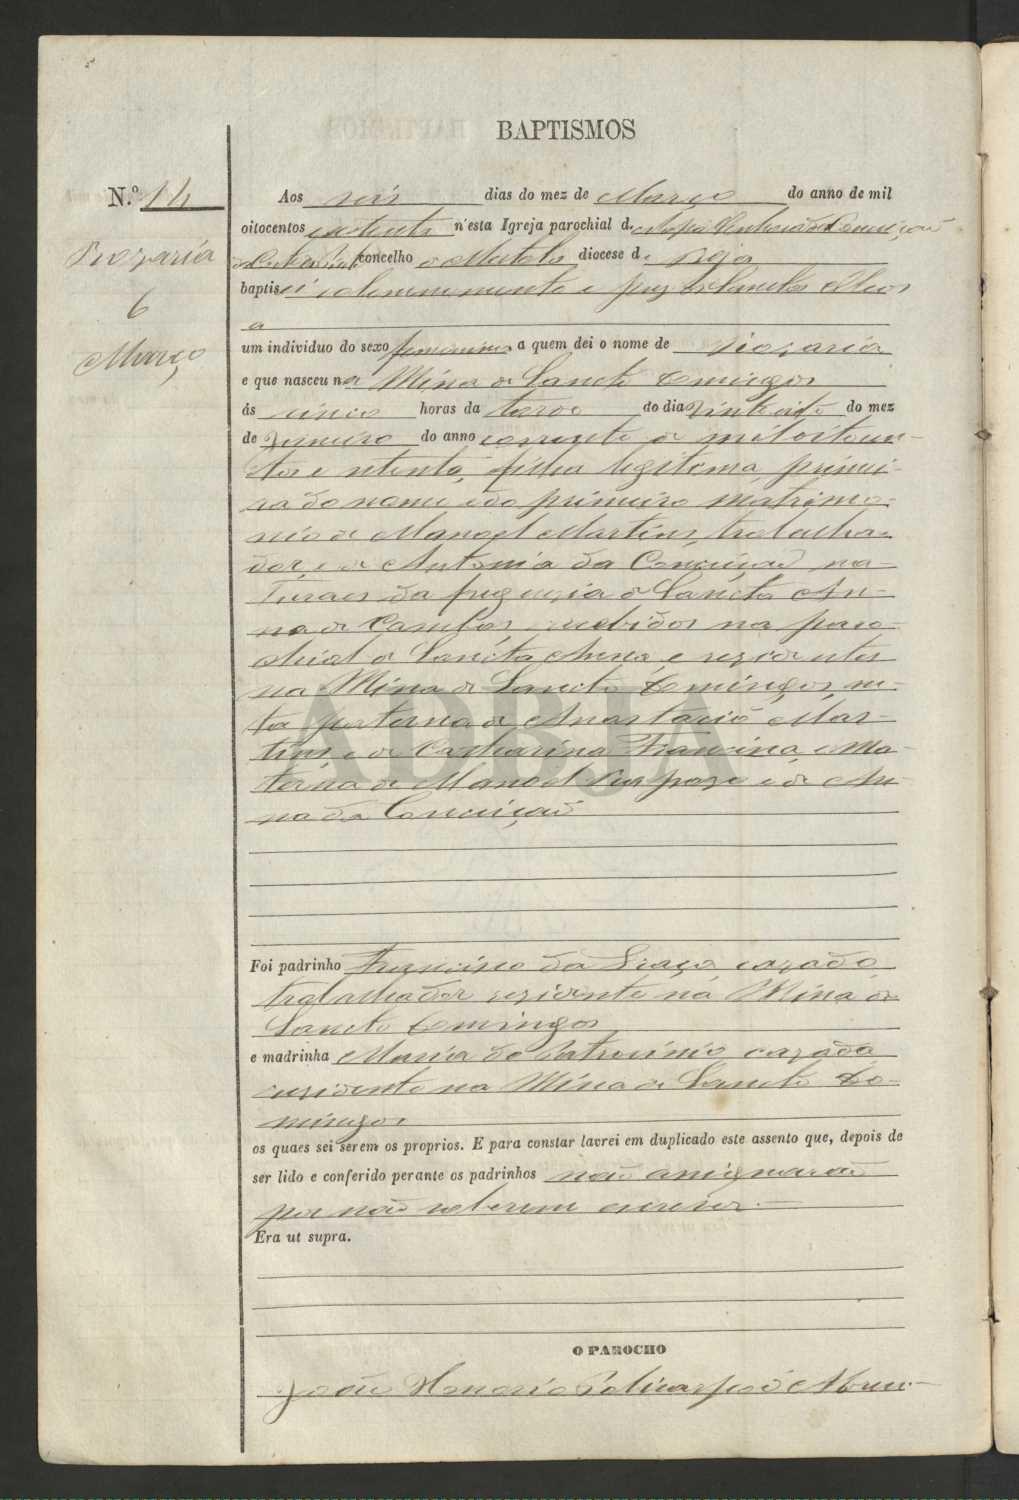 BAPTISMOS
N.º 14
Rozaria
6
Março
Aos seis dias do mez de Março do anno de mil
oitocentos e setenta n'esta Igreja parochial de Nossa Senhora da Conceição
concelho de Mertola diocese de Beja
baptisei solemnemente e puz os Sanctos Oleos
a
um individuo do sexo femenino a quem dei o nome de Rozaria
e que nasceu na Mina de Sancto Domingos
ás cinco horas da tarde do dia vinte oito do mez
de Janeiro do anno corrente de mil oitocen-
tos e setenta, filha legitima, primei-
ra do nome e do primeiro matrimo-
nio de Manoel Martins, trabalha-
dor, e de Antonia da Conceição na-
turaes da freguezia de Sancta An-
na de Cambas recebidos na paro-
chial de Sancta Anna e rezidentes
na Mina de Sancto Domingos, ne-
ta paterna de Anastacio Mar-
tins e de Catharina Francisca, e Ma-
terna de Manoel Raposo e de An-
na da Conceição
Foi padrinho Francisco da Graça cazado
trabalhador rezidente na Mina de
Sancto Domingos
e madrinha Maria do Patrocinio cazada
rezidente na Mina de Sancto Do-
mingos
os quaes sei serem os proprios. E para constar lavrei em duplicado este assento que, depois de
ser lido e conferido perante os padrinhos não assignarão
por não saberem escrever.
Era ut supra.
O PAROCHO
João Honorio Policarpo d'Abreu
ADBJA